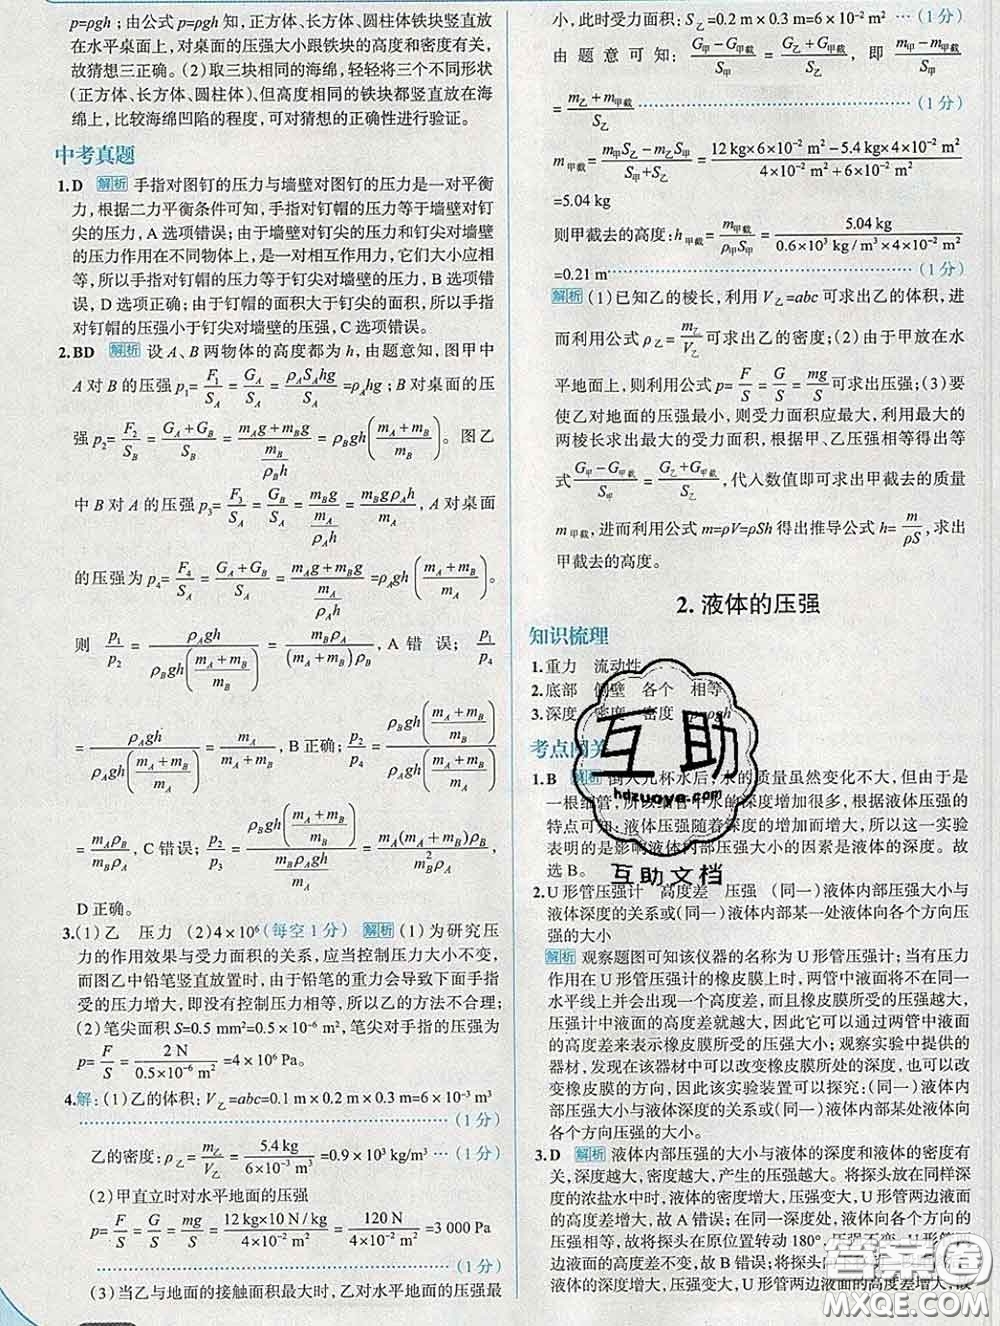 p=ρgh；由公式 p=ρgh 知，正方体、长方体、圆柱体铁块竖直放
在水平桌面上，对桌面的压强大小跟铁块的高度和密度有关，
故猜想三正确。（2）取三块相同的海绵，轻轻将三个不同形状
（正方体、长方体、圆柱体）、但高度相同的铁块都竖直放在海
绵上，比较海绵凹陷的程度，可对猜想的正确性进行验证。
中考真题
1.D 解析 手指对图钉的压力与墙壁对图钉的压力是一对平衡
力，根据二力平衡条件可知，手指对钉帽的压力等于墙壁对钉
尖的压力，A 选项错误；由于墙壁对钉尖的压力和钉尖对墙壁
的压力作用在不同物体上，是一对相互作用力，它们大小应相
等，所以手指对钉帽的压力等于钉尖对墙壁的压力，B 选项错
误，D 选项正确；由于钉帽的面积大于钉尖的面积，所以手指
对钉帽的压强小于钉尖对墙壁的压强，C 选项错误。
2.BD 解析 设 A、B 两物体的高度都为 h，由题意知，图甲中
A 对 B 的压强 p₁=F₁/S_A=G_A/S_A=ρ_A S_A hg/S_A=ρ_A hg；B 对桌面的压
强 p₂=F₂/S_B=(G_A+G_B)/S_B=(m_A g+m_B g)/(m_B/(ρ_B h))=ρ_B gh((m_A+m_B)/m_B)。图乙
中 B 对 A 的压强 p₃=F₃/S_A=G_B/S_A=m_B g/(m_A/(ρ_A h))=m_B gρ_A h/m_A，A 对桌面
的压强为 p₄=F₄/S_A=(G_A+G_B)/S_A=(m_A g+m_B g)/(m_A/(ρ_A h))=ρ_A gh((m_A+m_B)/m_A)。
则 p₁/p₂=ρ_A gh/(ρ_B gh((m_A+m_B)/m_B))=m_B ρ_A/((m_A+m_B)ρ_B)，A 错误；p₁/p₄
=ρ_A gh/(ρ_A gh((m_A+m_B)/m_A))=m_A/(m_A+m_B)，B 正确；p₂/p₄=ρ_B gh((m_A+m_B)/m_B)/(ρ_A gh((m_A+m_B)/m_A))
=m_A ρ_B/(m_B ρ_A)，C 错误；p₂/p₃=ρ_B gh((m_A+m_B)/m_B)/(m_B gρ_A h/m_A)=m_A(m_A+m_B)ρ_B/(m_B²ρ_A)，
D 正确。
3.（1）乙 压力 （2）4×10⁶（每空 1 分） 解析 （1）为研究压
力的作用效果与受力面积的关系，应当控制压力大小不变，
而图乙中铅笔竖直放置时，由于铅笔的重力会导致下面手指
受的压力增大，即没有控制压力相等，所以乙的方法不合理；
（2）笔尖面积 S=0.5 mm²=0.5×10⁻⁶ m²，笔尖对手指的压强为
p=F/S=2 N/(0.5×10⁻⁶ m²)=4×10⁶ Pa。
4.解：（1）乙的体积：V乙=abc=0.1 m×0.2 m×0.3 m=6×10⁻³ m³
（1 分）
乙的密度：ρ乙=m乙/V乙=5.4 kg/(6×10⁻³ m³)=0.9×10³ kg/m³ …（1 分）
（2）甲直立时对水平地面的压强
p=F/S=G/S=mg/S=12 kg×10 N/kg/(4×10⁻² m²)=120 N/(4×10⁻² m²)=3 000 Pa
（1 分）
（3）当乙与地面的接触面积最大时，乙对水平地面的压强最
小，此时受力面积：S乙=0.2 m×0.3 m=6×10⁻² m² …（1 分）
由题意可知：(G甲-G甲截)/S甲=(G乙+G甲截)/S乙，即 (m甲-m甲截)/S甲
=(m乙+m甲截)/S乙 ……（1 分）
m甲截=(m甲S乙-m乙S甲)/(S乙+S甲)=(12 kg×6×10⁻² m²-5.4 kg×4×10⁻² m²)/(4×10⁻² m²+6×10⁻² m²)
=5.04 kg
则甲截去的高度：h甲截=m甲截/(ρ甲S甲)=5.04 kg/(0.6×10³ kg/m³×4×10⁻² m²)
=0.21 m ……（1 分）
解析 （1）已知乙的棱长，利用 V乙=abc 可求出乙的体积，进
而利用公式 ρ乙=m乙/V乙 可求出乙的密度；（2）由于甲放在水
平地面上，则利用公式 p=F/S=G/S=mg/S 可求出压强；（3）要
使乙对地面的压强最小，则受力面积应最大，利用最大的
两棱长求出最大的受力面积，根据甲、乙压强相等得出等
式(G甲-G甲截)/S甲=(G乙+G甲截)/S乙，代入数值即可求出甲截去的质量
m甲截，进而利用公式 m=ρV=ρSh 得出推导公式 h=m/(ρS)，求出
甲截去的高度。
2. 液体的压强
知识梳理
1.重力 流动性
2.底部 侧壁 各个 相等
3.深度 密度 密度 p=ρgh
考点闯关
1.B 解析 倒入几杯水后，水的质量虽然变化不大，但由于是
一根细管，所以细管中水的深度增加很多，根据液体压强的
特点可知：液体压强随着深度的增加而增大，所以这一实验
表明的是影响液体内部压强大小的因素是液体的深度。故
选 B。
2.U 形管压强计 高度差 压强 （同一）液体内部压强大小与
液体深度的关系或（同一）液体内部某一处液体向各个方向压
强的大小
解析 观察题图可知该仪器的名称为 U 形管压强计；当有压力
作用在 U 形管压强计的橡皮膜上时，两管中液面将不在同一
水平线上并会出现一个高度差，而且橡皮膜所受的压强越大，
压强计中液面的高度差就越大，因此它可以通过两管中液面
的高度差来表示橡皮膜所受的压强大小；观察实验中提供的
器材，发现在该器材中可以改变橡皮膜所处的深度，也可以改
变橡皮膜的方向，因此该实验装置可以探究：（同一）液体内
部压强大小与液体深度的关系或（同一）液体内部液体向各个
方向的压强的大小。
3.D 解析 液体内部压强的大小与液体的深度和液体的密度有
关，深度越大，密度越大，产生的压强越大。将探头放在同样深
度的浓盐水中时，液体的密度增大，压强变大，U 形管两边液面
的高度差增大，故 A 错误；在同一深度处，液体向各个方向的
压强相等，故将探头在原位置转动 180°，压强不变，U 形管两
边液面的高度差不变，故 B 错误；将探头
液体的深度增大，压强变大，U 形管两边液面的高度差增大，故
互助
hdzuoye.com
互助文档
答案圈
MXQE.COM